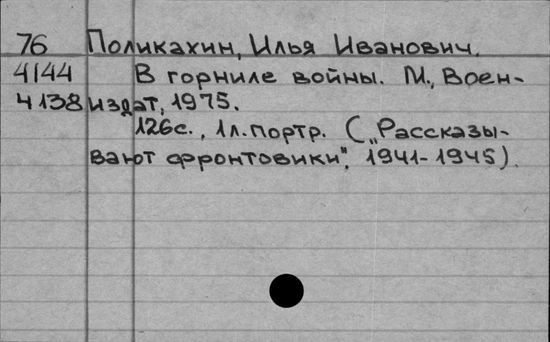 76 Поликахин, Илья Иванович.
4144 В горниле войны. М., Воен-
4138 издат, 1975.
126с., 1л.портр. („Рассказы-
вают фронтовики", 1941-1945).